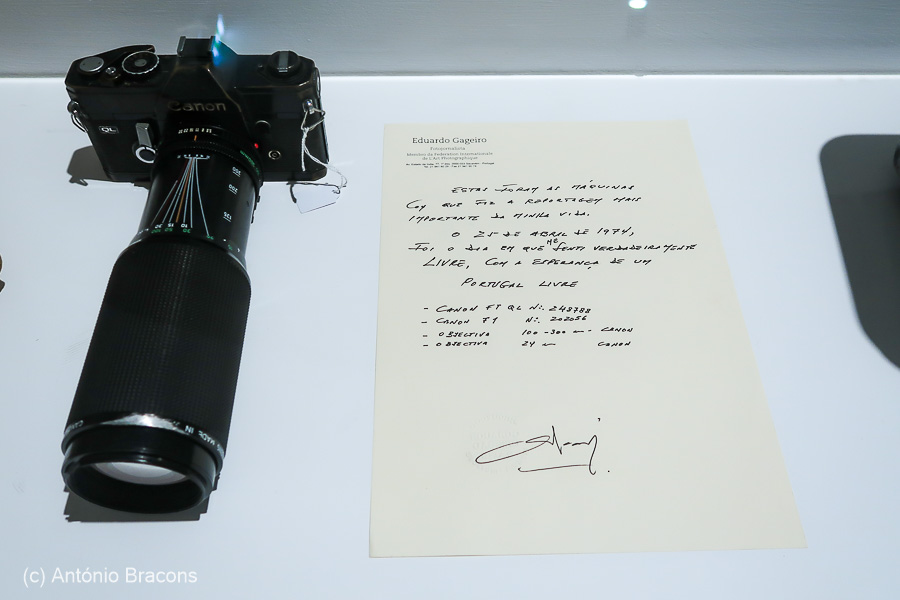 Canon
QL
300
200
135
Eduardo Gageiro
Fotojornalista
Membro da Federation Internationale
de L'Art Photographique
ESTAS FORAM AS MÁQUINAS
COM QUE FIZ A REPORTAGEM MAIS
IMPORTANTE DA MINHA VIDA.
O 25 DE ABRIL DE 1974,
FOI O DIA EM QUE ME SENTI VERDADEIRAMENTE
LIVRE, COM A ESPERANÇA DE UM
PORTUGAL LIVRE
- CANON FT QL Nº. 248788
- CANON F1 Nº. 202056
- OBJECTIVA 100-300 m- CANON
- OBJECTIVA 24 m CANON
(c) António Bracons